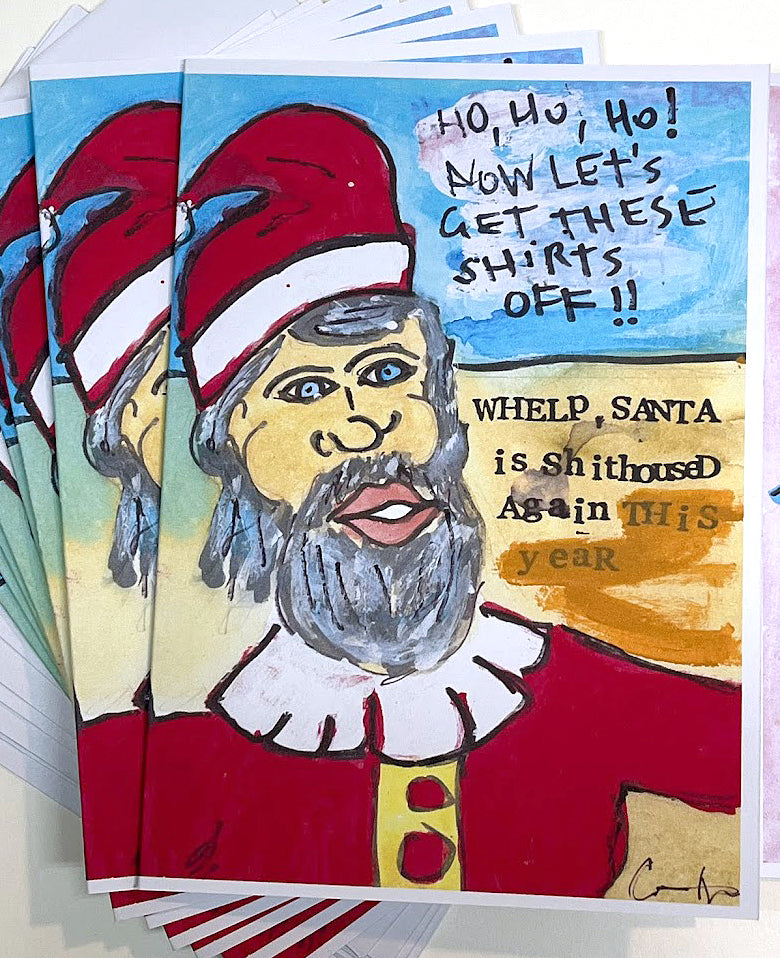 HO, HO, HO!
NOW LET'S
GET THESE
SHiRTS
OFF!!
WHELP, SANTA
is ShithouseD
Again THiS
yeaR